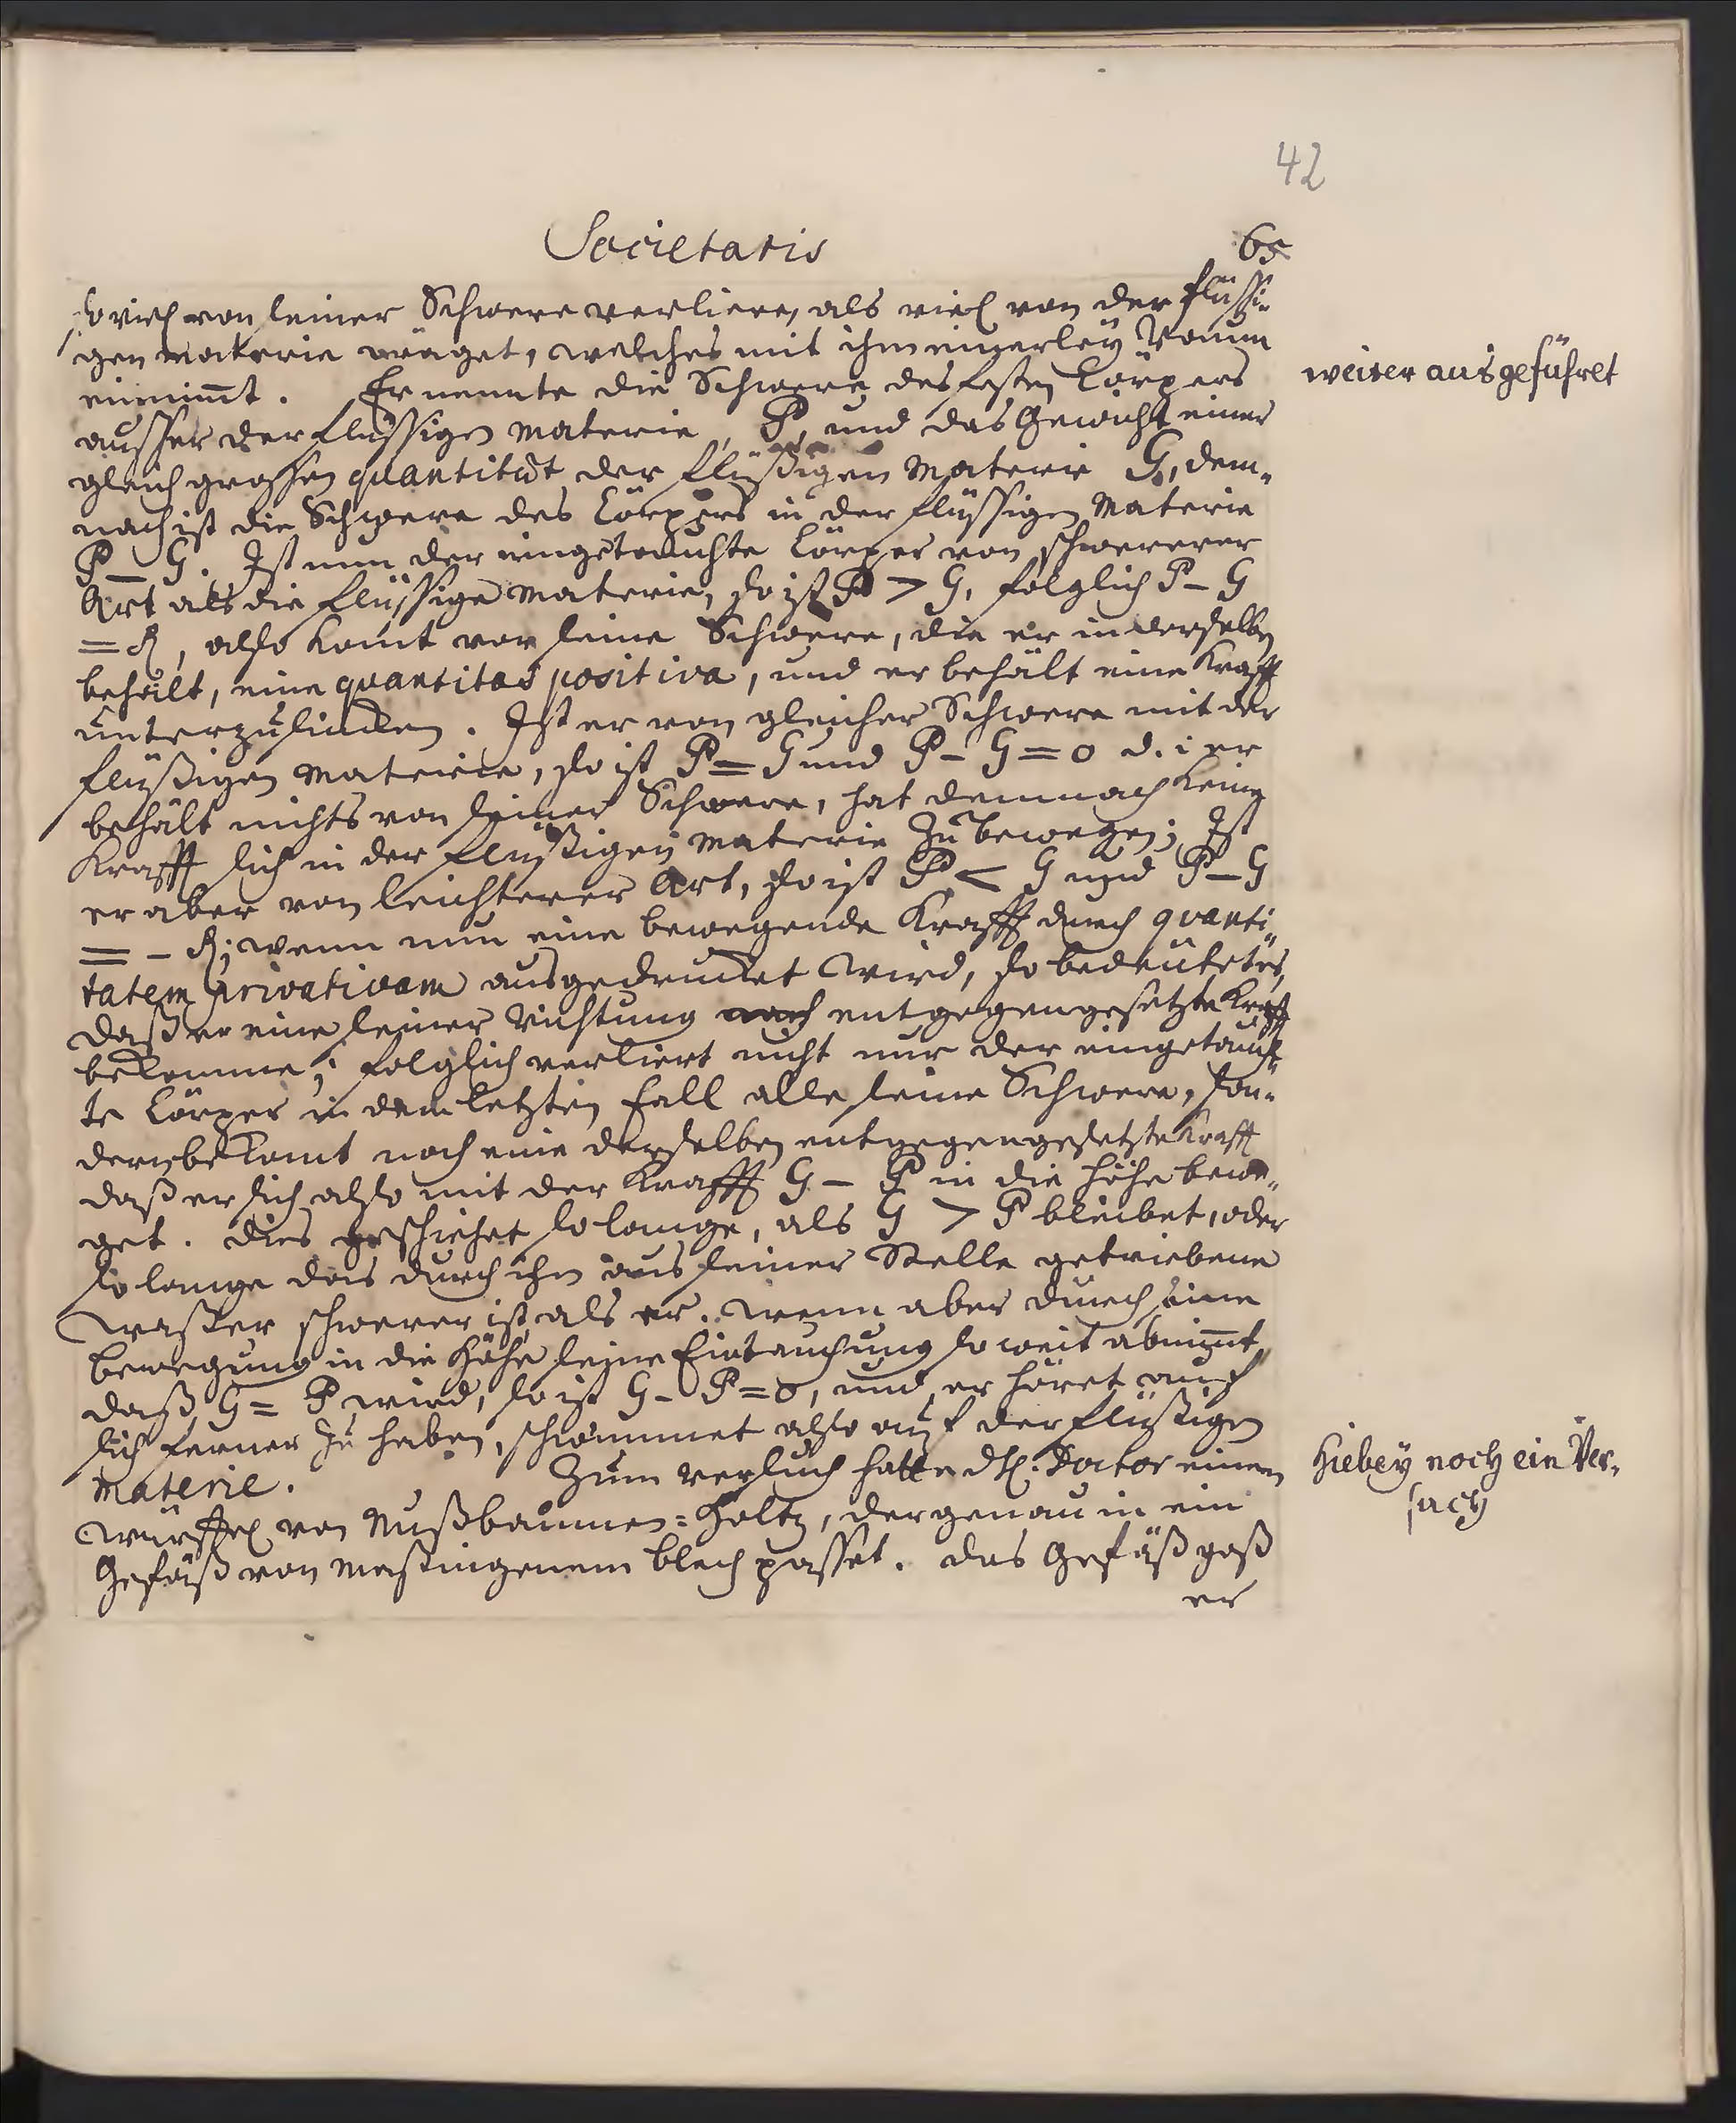 42
Societatis
65
so viel von seiner Schwere verliere, als viel von der flüssi-
gen materie wäget, welches mit ihm einerley Raum
einnim̅t. Er nennte die Schwere des festen Cörpers
weiter ausgeführet
ausser der flüssigen materie, P, und das Gewicht einer
gleich grossen quantität der flüßigen Materie G, dem„
nach ist die Schwere des Cörpers in der flüssigen Materie
P – G. Ist nun der eingetauchte Cörper von schwererer
Art als die flüssige materie, so ist P > G, folglich P – G
= R, also komt vor seine Schwere, die er in derselben
behält, eine quantitas positiva, und er behält eine Krafft
unterzusincken. Ist er von gleicher Schwere mit der
flüßigen materie, so ist P = G und P – G = 0 d. i er
behält nichts von seiner Schwere, hat demnach keine
Krafft sich in der flüßigen materie zu bewegen; Ist
er aber von leichterer Art, so ist P < G und P – G
= – R; wenn nun eine bewegende Krafft durch quanti„
tatem privativam ausgedrucket wird, so bedeutet es,
daß er eine seiner Richtung nach entgegengesetzte Krafft
bekomme; folglich verliert nicht nur der eingetauch„
te Cörper in dem letzten fall alle seine Schwere, son-
dern bekomt noch eine derselben entgegengesetzte Krafft
daß er sich also mit der Krafft G – P in die Höhe bewe„
get. dies geschiehet so lange, als G > P bleibet, oder
so lange das durch ihn aus seiner Stelle getriebene
Waßer schwerer ist als er. Wenn aber durch seine
bewegung in die Höhe seine Eintauchung so weit abnim̅t,
daß G = P wird, so ist G – P = 0, und er höret auf
sich ferner zu heben, schwimmet also auf der flüßigen
Materie. Zum versuch hatte dH. Doctor einen
Hiebey noch ein Ver„
such
Würffel von Nußbaumen= Holtz, der genau in ein
Gefäß von messingenem blech passet. das Gefäß goß
er